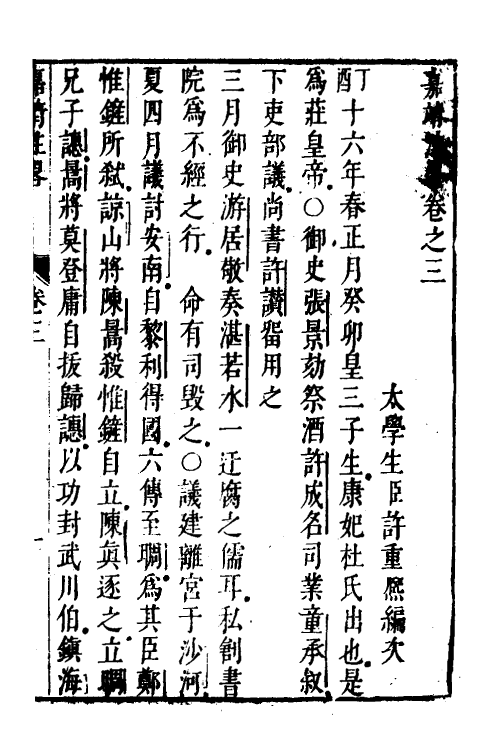 嘉靖注畧卷之三
太學生臣許重熈編次
丁酉十六年春正月癸卯皇三子生康妃杜氏出也是
爲莊皇帝○御史張景劾祭酒許成名司業童承叙
下吏部議尚書許讚畱用之
三月御史游居敬奏湛若水一迂腐之儒耳私創書
院爲不經之行 命有司毁之○議建離宮于沙河
夏四月議討安南自黎利得國六傳至晭爲其臣鄭
惟鏟所弑諒山將陳暠殺惟鏟自立陳眞逐之立晭
兄子譓暠將莫登庸自拔歸譓以功封武川伯鎭海
嘉靖注畧 卷三 一